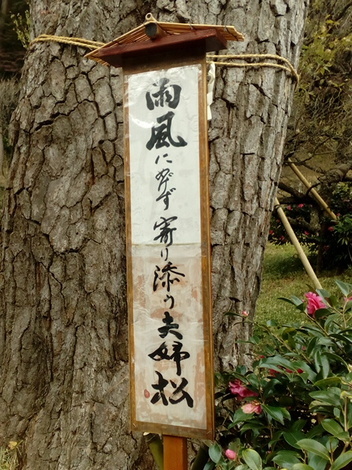 雨風にめげず寄り添う夫婦松